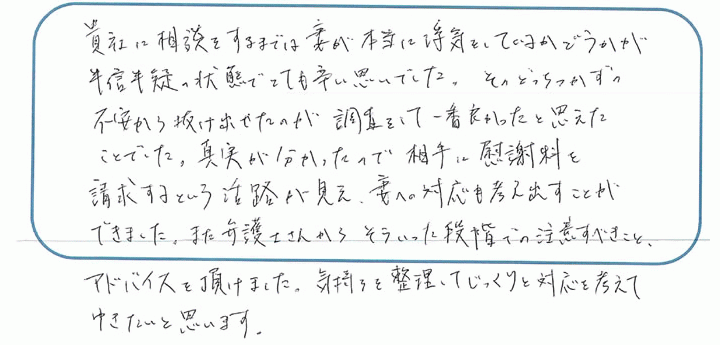 貴社に相談をするまでは妻が本当に浮気をしているかどうかが
半信半疑の状態でとても辛い思いでした。そのどっちつかずの
不安から抜け出せたのが調査をして一番良かったと思えた
ことでした。真実が分かったので相手に慰謝料を
請求するという活路が見え、妻への対応も考え出すことが
できました。また弁護士さんからそういった段階での注意すべきこと、
アドバイスを頂けました。気持ちを整理してじっくりと対応を考えて
ゆきたいと思います。